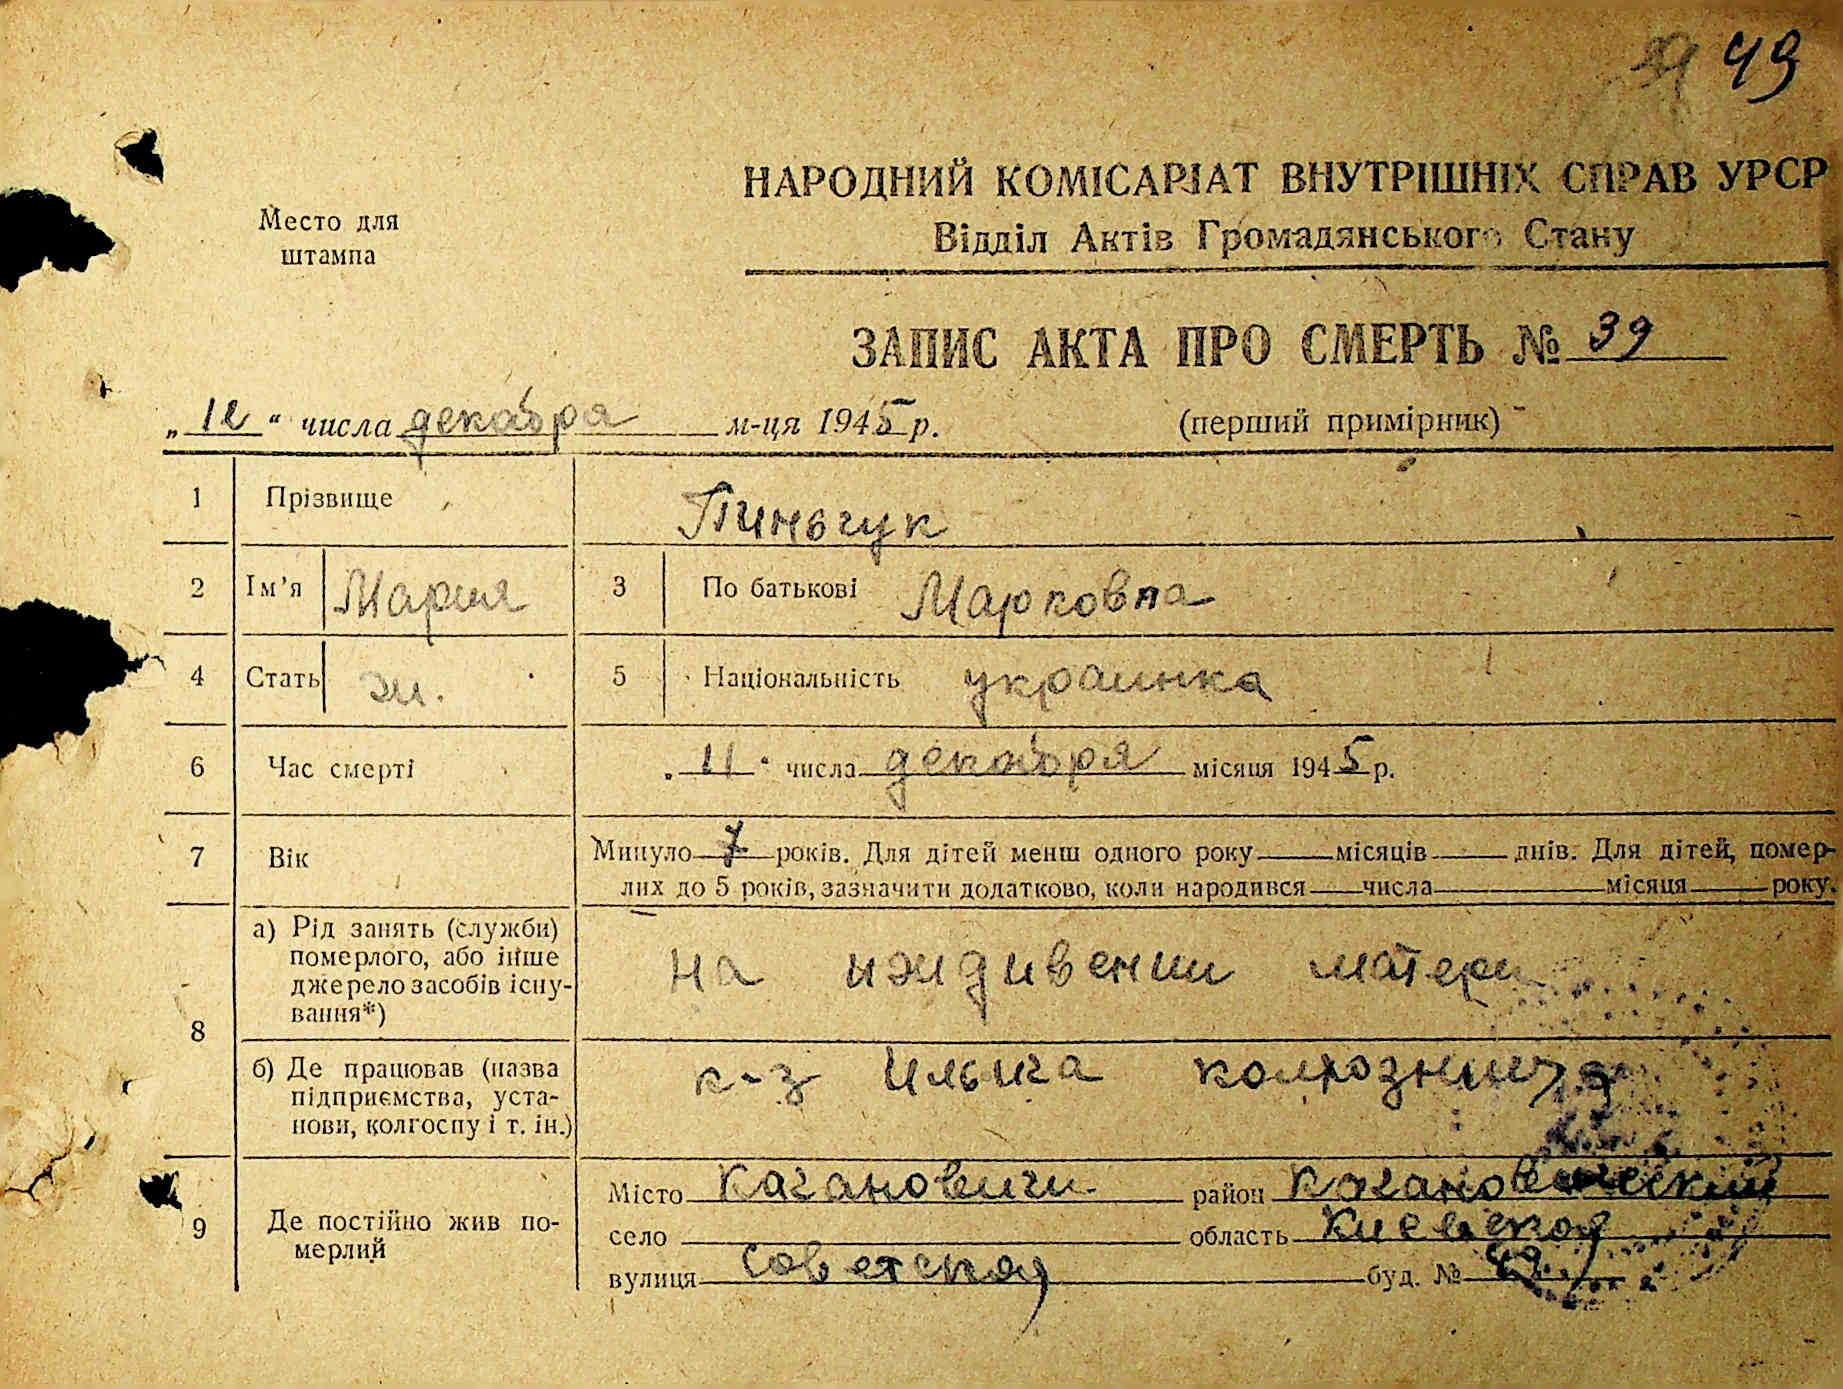 49
НАРОДНИЙ КОМІСАРІАТ ВНУТРІШНІХ СПРАВ УРСР
Відділ Актів Громадянського Стану
Место для
штампа
ЗАПИС АКТА ПРО СМЕРТЬ № 39
„12“ числа декабря м-ця 1945 р. (перший примірник)
1 Прізвище Пиньчук
2 Ім’я Мария 3 По батькові Марковна
4 Стать ж. 5 Національність украинка
6 Час смерті „11“ числа декабря місяця 1945 р.
7 Вік Минуло 7 років. Для дітей менш одного року місяців днів. Для дітей, помер-
лих до 5 років, зазначити додатково, коли народився числа місяця року.
8 а) Рід занять (служби)
померлого, або інше
джерело засобів існу-
вання*) на иждивении матери
б) Де працював (назва
підприємства, уста-
нови, колгоспу і т. ін.) к-з Ильича колхозница
9 Де постійно жив по-
мерлий
Місто Кагановичи район Кагановический
село область Киевская
вулиця Советская буд. №